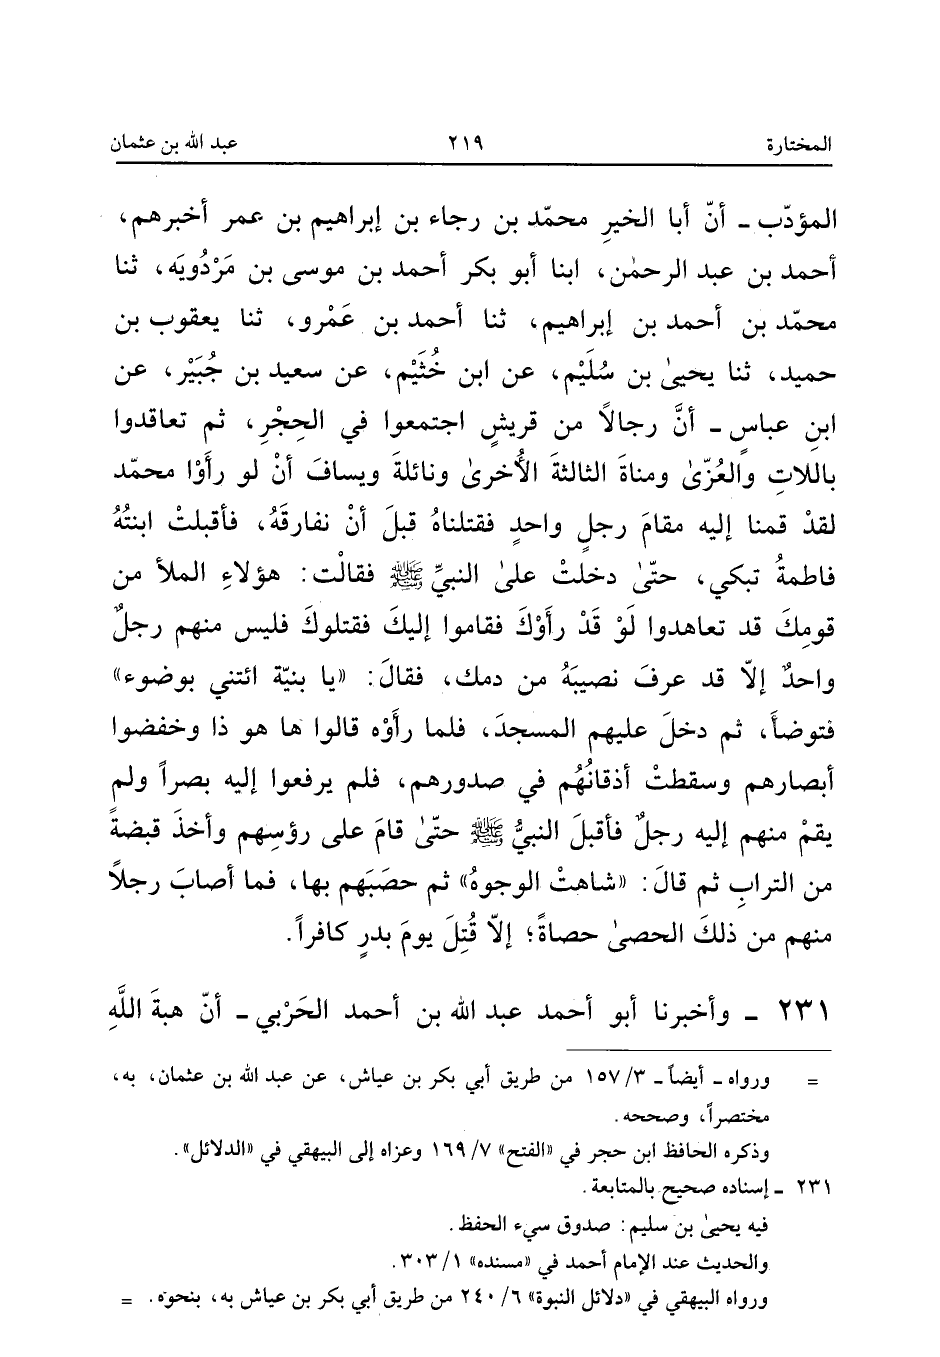 المختارة ٢١٩ عبد الله بن عثمان
المؤدّب ـ أنّ أبا الخيرِ محمّد بن رجاء بن إبراهيم بن عمر أخبرهم،
أحمد بن عبد الرحمٰن، ابنا أبو بكر أحمد بن موسى بن مَرْدُويَه، ثنا
محمّد بن أحمد بن إبراهيم، ثنا أحمد بن عَمْرو، ثنا يعقوب بن
حميد، ثنا يحيىٰ بن سُلَيْم، عن ابن خُثَيْم، عن سعيد بن جُبَيْر، عن
ابنِ عباسٍ ـ أنَّ رجالاً من قريشٍ اجتمعوا في الحِجْرِ، ثم تعاقدوا
باللاتِ والعُزّىٰ ومناةَ الثالثةَ الأُخرىٰ ونائلةَ ويسافَ أنْ لو رأَوْا محمّد
لقدْ قمنا إليه مقامَ رجلٍ واحدٍ فقتلناهُ قبلَ أنْ نفارقَهُ، فأقبلتْ ابنتُهُ
فاطمةُ تبكي، حتّىٰ دخلتْ علىٰ النبيِّ ﷺ فقالْت: هؤلاءِ الملأ من
قومِكَ قد تعاهدوا لَوْ قَدْ رأَوْكَ فقاموا إليكَ فقتلوكَ فليس منهم رجلٌ
واحدٌ إلاّ قد عرفَ نصيبَهُ من دمك، فقالَ: «يا بنيّة ائتني بوضوء»
فتوضأَ، ثم دخلَ عليهم المسجدَ، فلما رأَوْه قالوا ها هو ذا وخفضوا
أبصارهم وسقطتْ أذقانُهُم في صدورهم، فلم يرفعوا إليه بصراً ولم
يقمْ منهم إليه رجلٌ فأقبلَ النبيُّ ﷺ حتّىٰ قامَ على رؤسِهم وأخذَ قبضةً
من الترابِ ثم قالَ: «شاهتْ الوجوهُ» ثم حصَبَهم بها، فما أصابَ رجلاً
منهم من ذلكَ الحصىٰ حصاةً؛ إلاّ قُتِلَ يومَ بدرٍ كافراً.
٢٣١ ـ وأخبرنا أبو أحمد عبد الله بن أحمد الحَرْبي ـ أنّ هبةَ اللَّهِ
= ورواه ـ أيضاً ـ ١٥٧/٣ من طريق أبي بكر بن عياش، عن عبد الله بن عثمان، به،
مختصراً، وصححه.
وذكره الحافظ ابن حجر في «الفتح» ١٦٩/٧ وعزاه إلى البيهقي في «الدلائل».
٢٣١ ـ إسناده صحيح بالمتابعة.
فيه يحيىٰ بن سليم: صدوق سيء الحفظ.
والحديث عند الإمام أحمد في «مسنده» ٣٠٣/١.
ورواه البيهقي في «دلائل النبوة» ٢٤٠/٦ من طريق أبي بكر بن عياش به، بنحوه. =